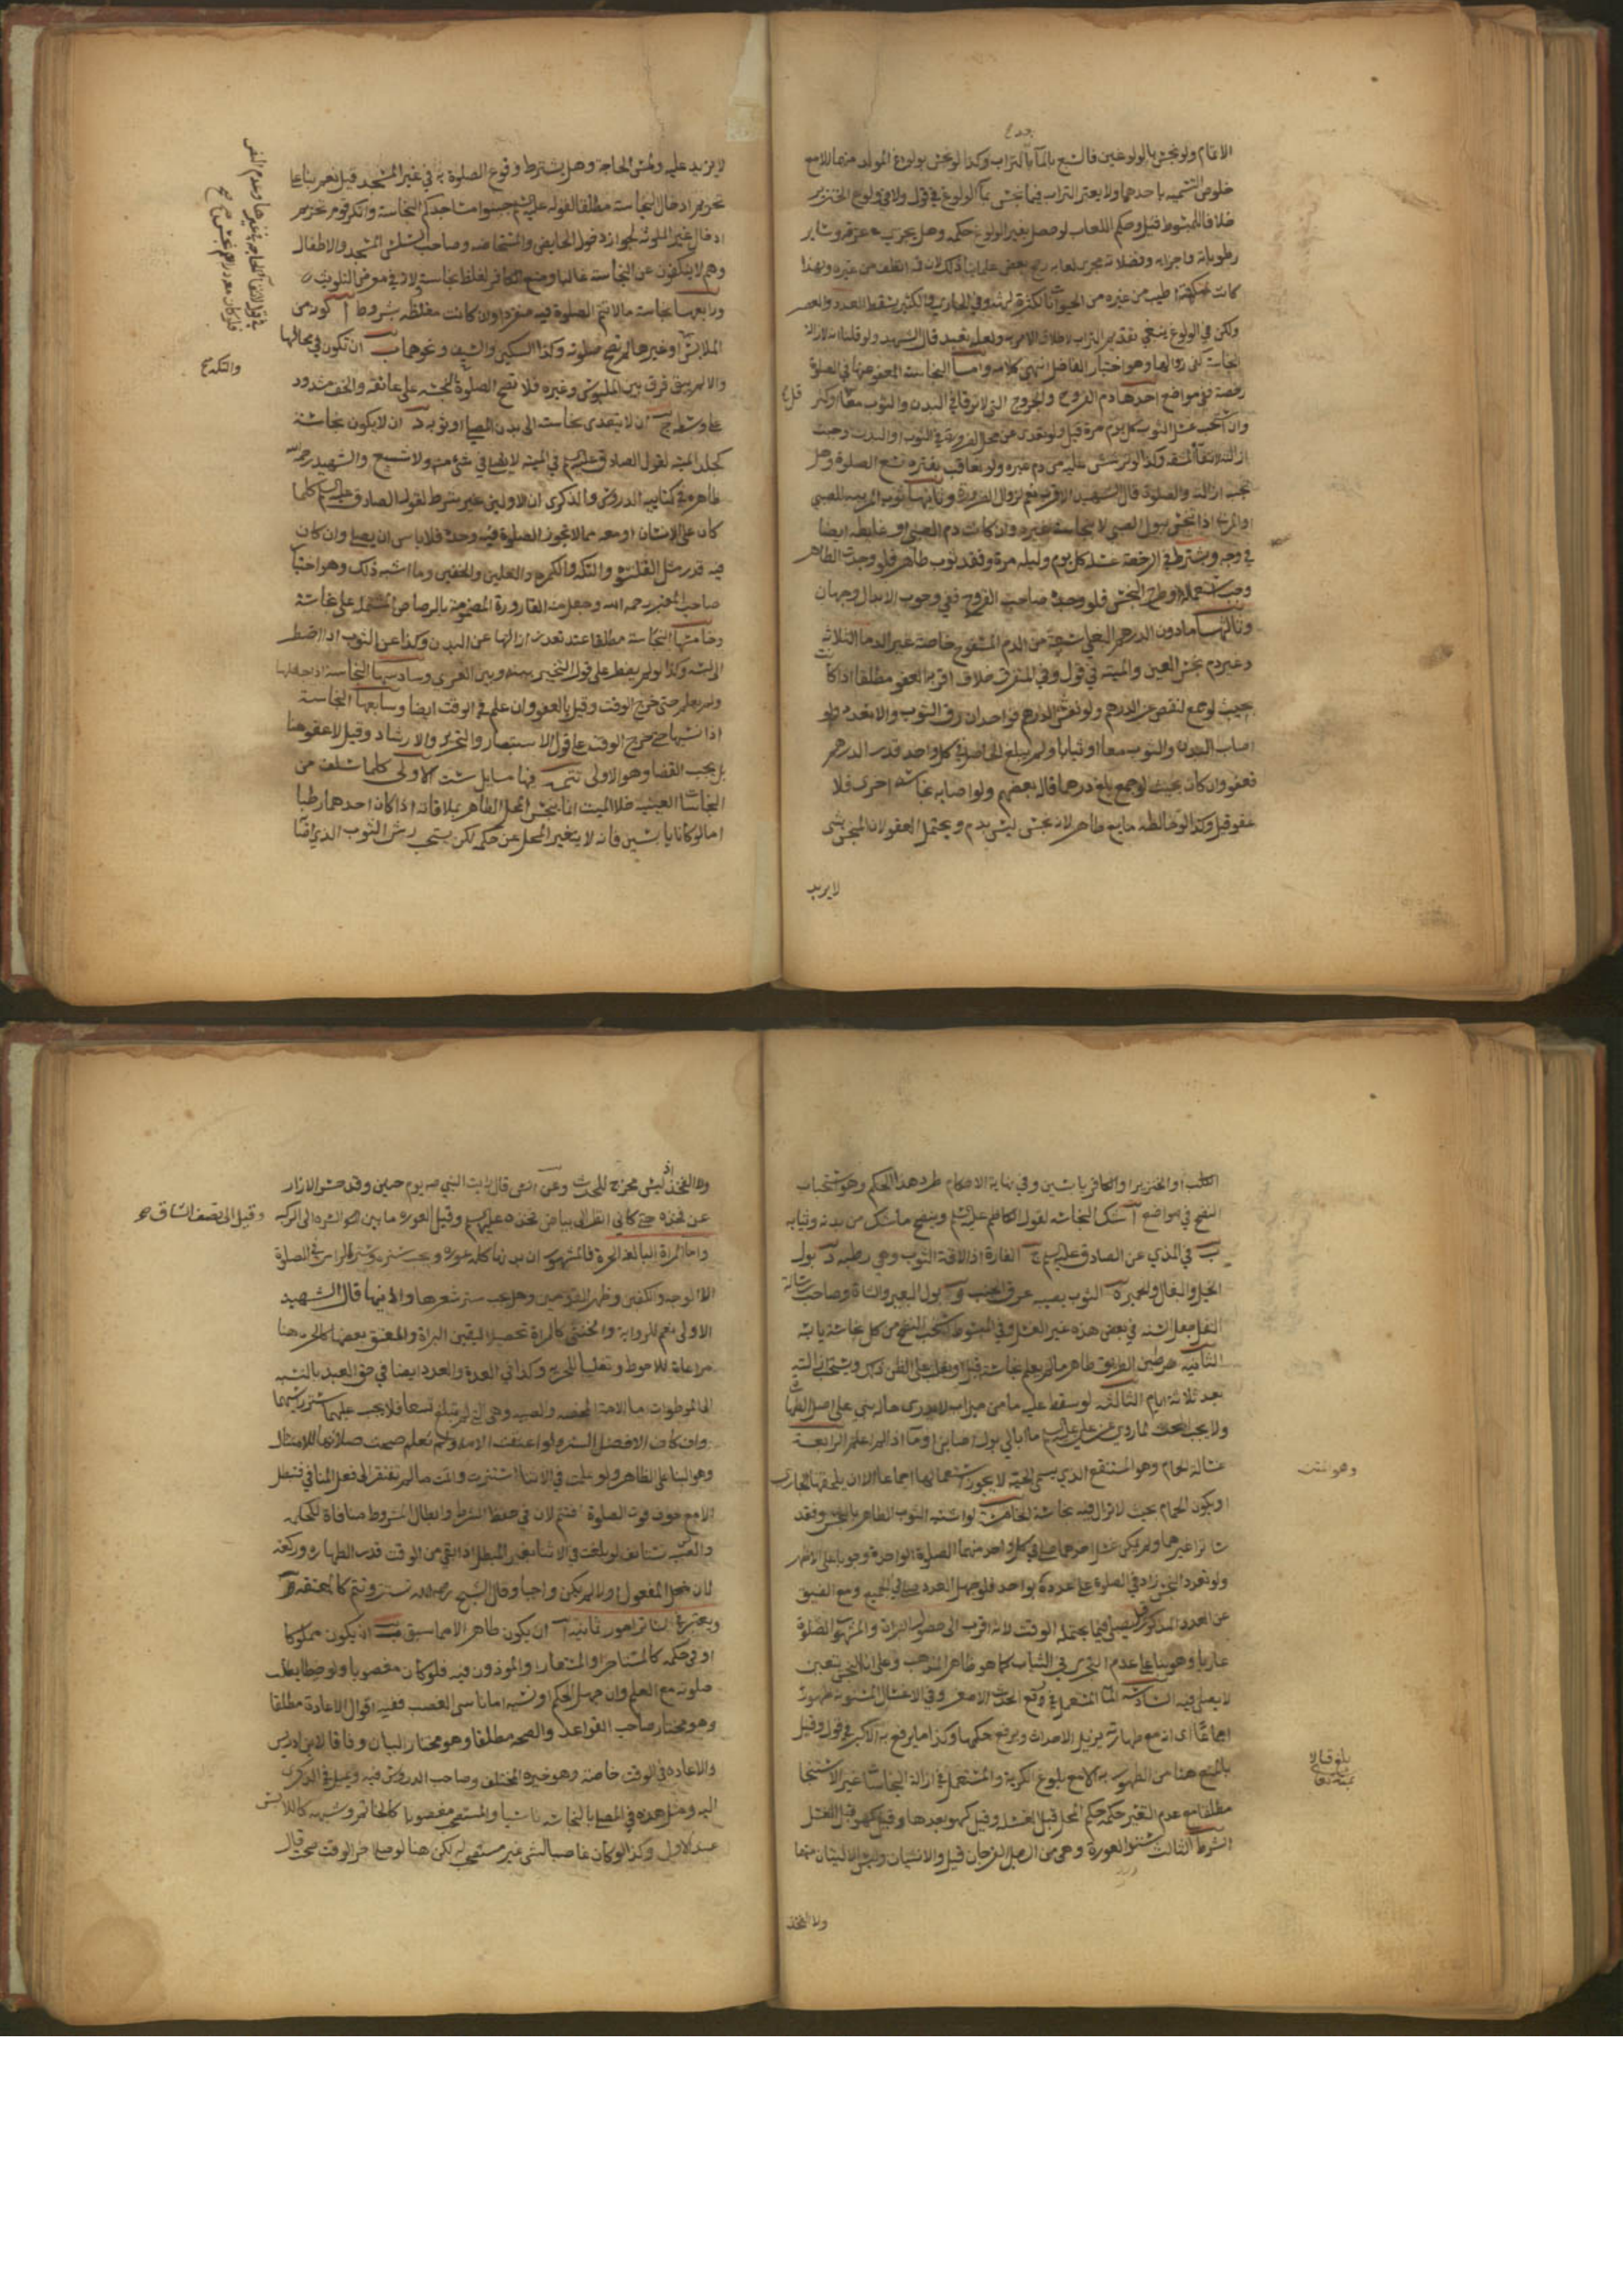 الاقام ولو نجس بالولوغين فالسبع بالماء بالتراب وكذا لو نجس بولوغ المولد منهما للامع
خلوص التسميه باحدهما ولا يعتبر التراب فيما نجس بماء الولوغ في قول ولا في ولوغ الخنزير
خلافا للمبسوط قيل وحكم اللعاب لو حصل بغير الولوغ حكمه وهل يجري عرقه وسائر
رطوباته واجزاءه وفضلاته مجرى لعابه رجح بعض علمائنا ذلك لان فمه انظف من غيره ولهذا
كانت نكهته اطيب من غيره من الحيوانات لكثرة لهثه وفي الجاري والكثير يسقط العدد والعصر
ولكن في الولوغ ينبغي تقديم التراب لاطلاق الامر به ولعله تعبد قال الشهيد ولو قلنا انه لازالة
النجاسة كفى زوالها وهو اختيار الفاضل انتهى كلامه واما النجاسة المعفو عنها في الصلوة
رخصة ففي مواضع احدها دم القروح والجروح التي لا ترقا في البدن والثوب معا وكثر
وان استحب غسل الثوب كل يوم مرة قيل ولو تعدى عن محل الضرورة في الثوب او البدن وجبت
ازالته لانتفاء المشقة وكذا لو ترشش عليه من دم غيره ولو تعاقب بفترة تسع الصلوة وهل
تجب ازالته والصلوة قال الشهيد الاقرب نعم لزوال الضرورة وثانيها ثوب المربيه للصبي
او المربى اذا نجس ببول الصبي لا بنجاسة غيره وان كانت دم الصبي او غايطه ايضا
في وجه ويشترط في الرخصة غسله كل يوم وليله مرة وفقد ثوب طاهر فلو وجدت الطاهر
وجب استعماله وطرح النجس فلو وجده صاحب القروح ففي وجوب الابدال وجهان
وثالثها ما دون الدرهم البغلي سعة من الدم المسفوح خاصة غير الدماء الثلاثة
وغير دم نجس العين والميته في قول وفي المتفرق خلاف اقربه العفو مطلقا اذا كانت
بحيث لو جمع لنقص عن الدرهم ولو تفشى الدرهم فواحد ان رق الثوب والا تعدد ولو
اصاب البدن والثوب معا او ثيابا ولم يبلغ الحاصل في كل واحد قدر الدرهم
فعفو وان كان بحيث لو جمع بلغ درهما قاله بعضهم ولو اصابه نجاسة اخرى فلا
عفو قيل وكذا لو خالطه مايع طاهر لانه نجس ليس بدم ويحتمل العفو لان المنجس بشئ
لا يزيد
لا يزيد عليه ولمس الحاجة وهل يشترط وقوع الصلوة به في غير المسجد قيل نعم بناء على
تحريم ادخال النجاسة مطلقا لقوله عليه السلام جنبوا مساجدكم النجاسة وانكر قوم تحريم
ادخال غير الملوثه لجواز دخول الحايض والمستحاضه وصاحب السلس المسجد والاطفال
وهم لا ينفكون عن النجاسة غالبا ومنع الكافر لغلظ نجاسته ولانه في معرض التلويث
ورابعها نجاسة ما لا تتم الصلوة فيه منفردا وان كانت مغلظه بشروط ا كونه من
الملابس او غيرها لم تصح صلوته وكذا السكين والسيف ونحوها ب ان تكون في محالها
والا لم يبق فرق بين الملبوس وغيره فلا تصح الصلوة لتكة على عاتقه والخف مشدود
على وسطه ج ان لا يتعدى نجاسته الى بدن المصلي او ثوبه د ان لا يكون نجاسته
كجلد الميته لقول الصادق عليه السلام في الميته لا يصلي في شئ منه ولا شسع والشهيد رحمه الله
ظاهره في كتابيه الدروس والذكرى ان الاولين غير شرط لقول الصادق عليه السلام كلما
كان على الانسان او معه مما لا تجوز الصلوة فيه وحده فلا باس ان يصلي وان كان
فيه قذر مثل القلنسوة والتكه والكمره والنعلين والخفين وما اشبه ذلك وهو اختيار
صاحب المعتبر رحمه الله وجعل منه القارورة المضمومة بالرصاص المشتمله على نجاسة
وخامسها النجاسة مطلقا عند تعذر ازالتها عن البدن وكذا عن الثوب اذا اضطر
الى لبسه وكذا لو لم يضطر على قول التخيير بينه وبين العرى وسادسها النجاسة اذا جهلها
ولم يعلم حتى خرج الوقت وقيل بالعفو وان علم في الوقت ايضا وسابعها النجاسة
اذا نسيها حتى خرج الوقت على قول الاستبصار والتحرير والارشاد وقيل لا عفو هنا
بل يجب القضا وهو الاولى تتمه فيها مسايل ست الاولى كلما سلف من
النجاسات العينيه خلا الميت انما ينجس المحل الطاهر بملاقاته اذا كان احدهما رطبا
اما لو كانا يابسين فانه لا يتغير المحل عن حكمه لكن يستحب رش الثوب الذي اصابه
والتكه
الكلب او الخنزير او الكافر يابسين وفي نهاية الاحكام طرد هذا الحكم وهو استحباب
النضح في مواضع ا شك النجاسه لقول الكاظم عليه السلام وينضح ما شك من بدنه وثيابه
ب في المذي عن الصادق عليه السلام ج الفارة اذا لاقت الثوب وهي رطبه د بول
الخيل والبغال والحمير ه الثوب يصيبه عرق الجنب و بول البعير والشاة وصاحب
في بعض هذه غير الغسل وفي المبسوط يستحب النضح من كل نجاسة يابسة
الثانيه طين الطريق طاهر ما لم يعلم نجاسته قيل او يغلب على الظن ويستحب ازالته
بعد ثلاثة ايام الثالثه لو سقط عليه ماء من ميزاب لا يدري حاله بني على اصل الطهارة
ولا يجب البحث لما روي عن علي عليه السلام ما ابالي بول اصابني او ماء اذا لم اعلم الرابعة
غسالة الحمام وهو المستنقع الذي يسمى الجية لا يجوز استعمالها اجماعا الا ان يلحقها الجاري
او يكون الحمام بحيث لا تزال فيه نجاسة الخامسة لو اشتبه الثوب الطاهر بالنجس وفقد
غيرهما ولم يمكن غسل احدهما صلى في كل واحد منهما الصلوة الواحدة وجوبا على الاظهر
ولو تعدد النجس زاد في الصلوة على عدده بواحد فلو جهل العدد صلى في الجميع ومع الضيق
عن العدد المذكور يصلي فيما يحتمله الوقت لانه اقرب الى حصول البراة والمشهور الصلوة
عاريا وهو بناء على عدم التحري في الثياب كما هو ظاهر المذهب
لا يصلي فيه السادسه الماء المستعمل في رفع الحدث الاصغر وفي الاغسال المسنونه طهور
اجماعا اي انه مع طهارته يزيل الاحداث ويرفع حكمها وكذا ما يرفع به الاكبر في قول وقيل
بالمنع هنا من الطهورية الا مع بلوغ الكرية والمستعمل في ازالة النجاسات غير الاستنجا
مطلقا مع عدم التغير حكمه حكم المحل قبل الغسل وقيل كهو بعدها وقيل كهو قبل الغسل
الشرط الثالث ستر العورة وهي من الرجل الفرجان قيل والانثيان وليس الاليتان منها
ولا الفخذ
ولا الفخذ اذ ليس مخرج للحدث وعن انس قال رايت النبي ص يوم حنين وقد حسر الازار
عن فخذه حتى كاني انظر الى بياض فخذه عليه السلام وقيل العوره ما بين السرة الى الركبه
وقيل الى نصف الساق
واما المراة البالغه الحرة فالمشهور ان بدنها كله عورة ويجب ستره في الصلوة
الا الوجه والكفين وظهر القدمين وهل يجب ستر شعرها واذنيها قال الشهيد
الاولى نعم للرواية والخنثى كالمراة تحصيلا ليقين البراة والمعتق بعضها كالحره هنا
مراعاة للاحوط وتغليبا للحرية وكذا في العدة والعدد ايضا في حق العبد بالنسبه
الى الموطوات اما الامة المحضه والصبيه وهي التي لم تبلغ تسعا فلا يجب عليهما ستر راسيهما
وان كان الافضل الستر ولو اعتقت الامه ولم تعلم صحت صلاتها للامتثال
وهو البنا على الظاهر ولو علمت في الاثنا استترت واتمت ما لم تفتقر الى فعل المنافي فتبطل
الا مع خوف فوت الصلوة فتتم لان في حفظ الشرط وابطال المشروط منافاة للحكمة
والصبيه تستانف لو بلغت في الاثنا بغير المبطل اذا بقي من الوقت قدر الطهارة وركعة
اولا لم يكن واجبا وقال الشيخ رحمه الله تستتر وتتم كالمعتقة
ويعتبر في الساتر امور ثمانيه ا ان يكون طاهرا الا ما سبق ب ان يكون مملوكا
او في حكمه كالمستاجر والمستعار والمؤذون فيه فلو كان مغصوبا ولو خيطا بطلت
صلوته مع العلم وان جهل الحكم او نسيه اما ناسي الغصب ففيه اقوال الاعادة مطلقا
وهو مختار صاحب القواعد والصحه مطلقا وهو مختار البيان وفاقا لابن ادريس
والاعاده في الوقت خاصة وهو خيره المختلف وصاحب الدروس فيه وميل في الذكرى
اليه ومثل هذه في المصلي بالنجاسه ناسيا والمستصحب مغصوبا كالخاتم وشبهه كاللابس
عند الاول وكذا لو كان غاصبا لشئ غير مستصحب له لكن هنا لو صلى اخر الوقت صحت قال